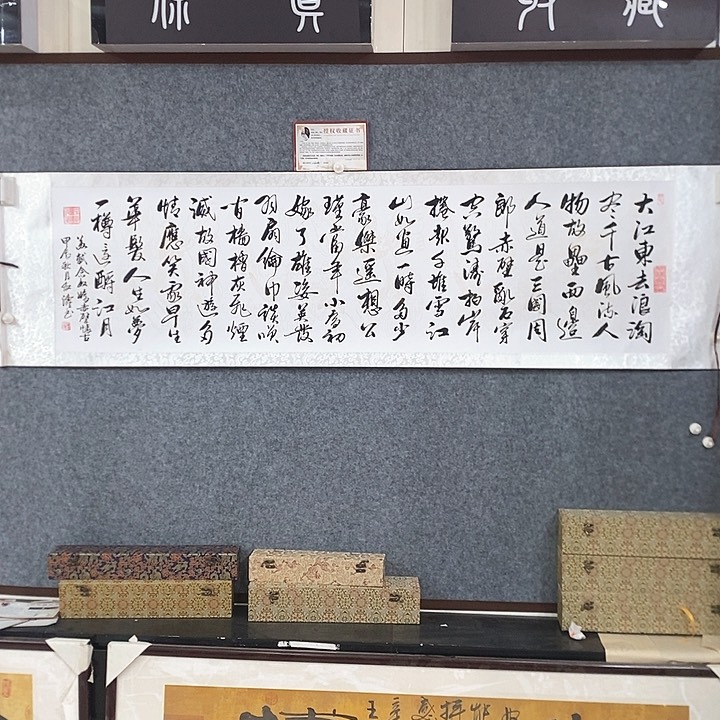 授权收藏证书
大江東去浪淘
尽千古風流人
物故壘西邊
人道是三國周
郎赤壁亂石穿
空驚濤拍岸
捲起千堆雪江
山如畫一時多少
豪傑遙想公
瑾當年小喬初
嫁了雄姿英發
羽扇綸巾談笑
間檣櫓灰飛煙
滅故國神遊多
情應笑我早生
華髮人生如夢
一樽還酹江月
蘇軾念奴嬌赤壁懷古
甲辰秋月